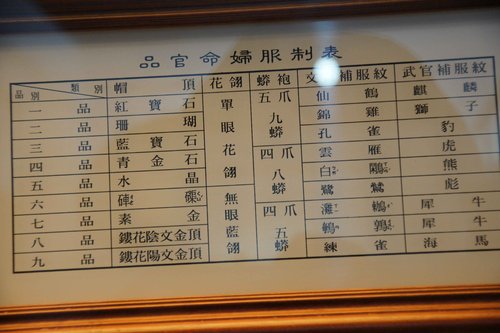 品官命婦服制表
品別 類別 帽頂 花翎 蟒袍 文官補服紋 武官補服紋
一品 紅寶石 單眼花翎 五爪九蟒 仙鶴 麒麟
二品 珊瑚 錦雞 獅子
三品 藍寶石 孔雀 豹
四品 青金石 四爪八蟒 雲雁 虎
五品 水晶 白鷳 熊
六品 硨磲 無眼藍翎 鷺鷥 彪
七品 素金 四爪五蟒 犀牛
八品 鏤花陰文金頂 鵪鶉 犀牛
九品 鏤花陽文金頂 練雀 海馬